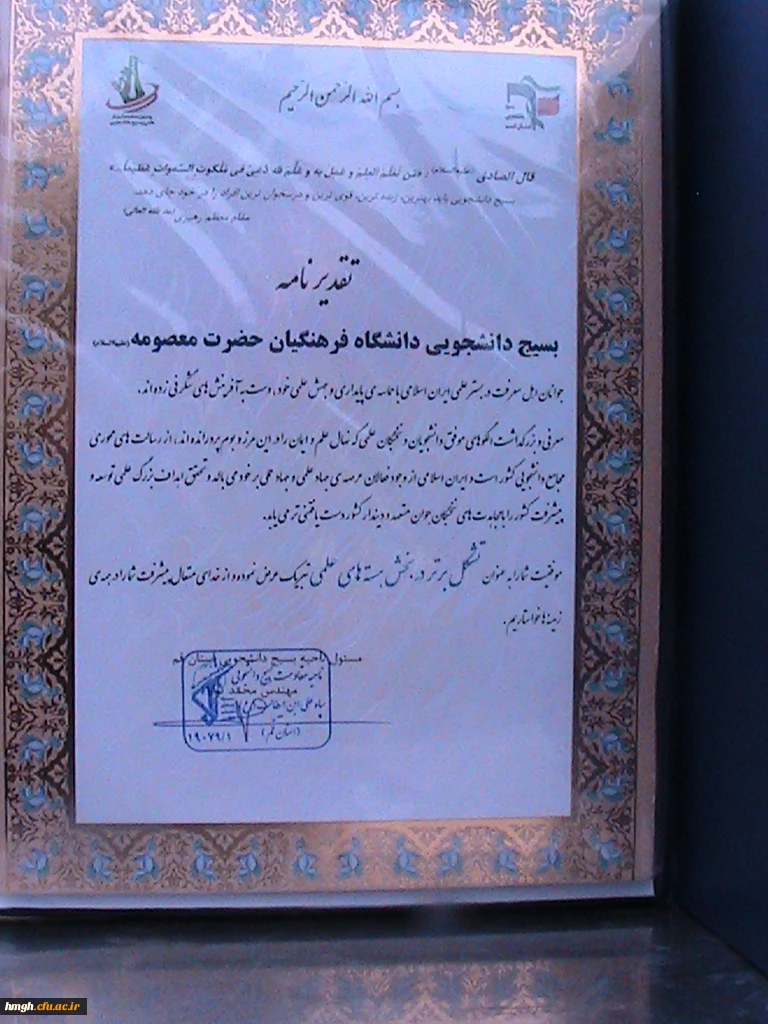 بسم الله الرحمن الرحیم
قال الصادق (علیه‌السلام): من تعلم العلم و عمل به و علم لله دعی فی ملکوت السموات عظیما
بسیج دانشجویی باید بهترین، زنده ترین، قوی ترین و درسخوان ترین افراد را در خود جای دهد.
مقام معظم رهبری (مد ظله العالی)
تقدیر نامه
بسیج دانشجویی دانشگاه فرهنگیان حضرت معصومه
جوانان اهل معرفت در بستر علمی ایران اسلامی با حماسه ی پایداری و جهش علمی خود، دست به آفرینش های شگرفی زده اند.
معرفی و بزرگداشت الگوهای موفق دانشجویان و نخبگان علمی که نهال علم و ایمان را در این مرز و بوم پرورانده اند، از رسالت های محوری
مجامع دانشجویی کشور است و ایران اسلامی از وجود فعالان عرصه ی جهاد علمی و جهاد عملی بر خود می بالد و تحقق اهداف بزرگ علمی توسعه و
پیشرفت کشور را با مجاهدت های نخبگان جوان متعهد و دیندار کشور دست یافتنی تر می یابد.
موفقیت شما را به عنوان تشکل برتر در بخش هسته های علمی تبریک عرض نموده و از خدای متعال پیشرفت شما را در همه ی
زمینه ها خواستاریم.
مسئول ناحیه بسیج دانشجویی استان قم
ناحیه مقاومت بسیج دانشجویی
مهندس محمد
سپاه علی ابن ابیطالب
(استان قم)
۱۹۰۷۹/۱
hmgh.cfu.ac.ir